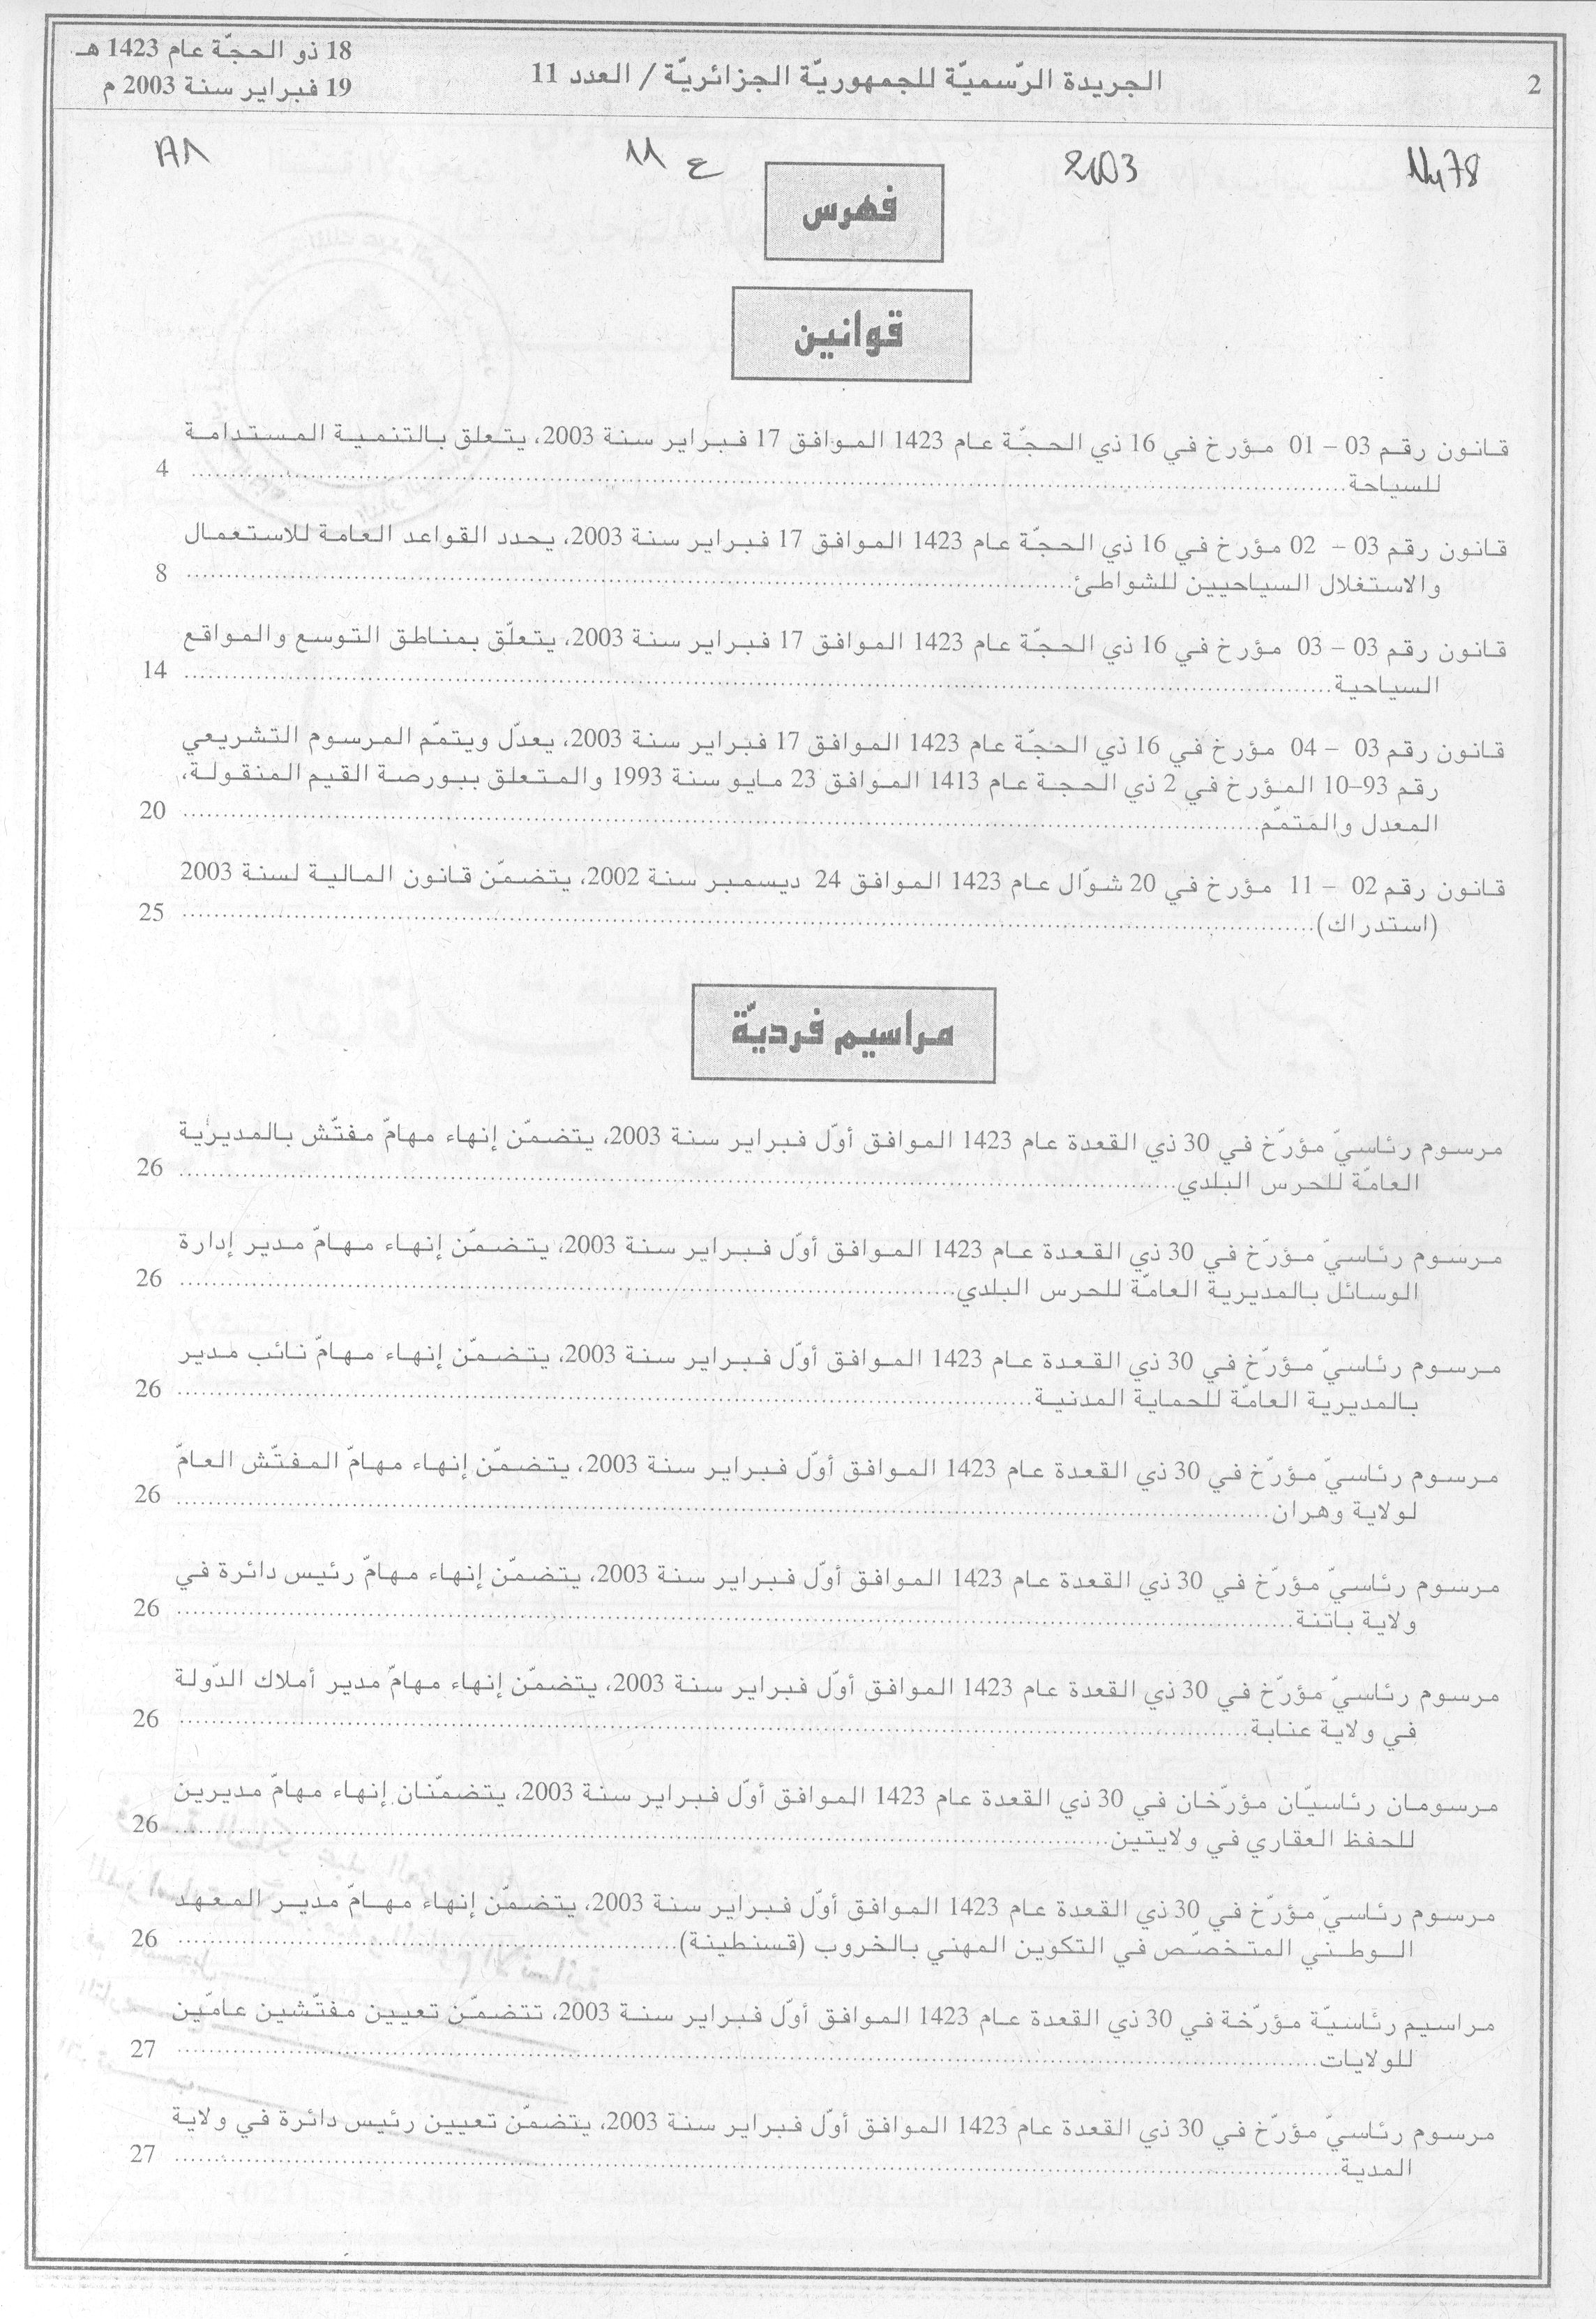 2
الجريدة الرّسميّة للجمهوريّة الجزائريّة / العدد 11
18 ذو الحجّة عام 1423 هـ
19 فبراير سنة 2003 م
2003
ع 11
فهرس
قوانين
قانون رقم 03 – 01 مؤرخ في 16 ذي الحجّة عام 1423 الموافق 17 فبراير سنة 2003، يتعلق بالتنمية المستدامة
للسياحة........ 4
قانون رقم 03 – 02 مؤرخ في 16 ذي الحجّة عام 1423 الموافق 17 فبراير سنة 2003، يحدد القواعد العامة للاستعمال
والاستغلال السياحيين للشواطئ........ 8
قانون رقم 03 – 03 مؤرخ في 16 ذي الحجّة عام 1423 الموافق 17 فبراير سنة 2003، يتعلّق بمناطق التوسع والمواقع
السياحية........ 14
قانون رقم 03 – 04 مؤرخ في 16 ذي الحجّة عام 1423 الموافق 17 فبراير سنة 2003، يعدّل ويتمّم المرسوم التشريعي
رقم 93–10 المؤرخ في 2 ذي الحجة عام 1413 الموافق 23 مايو سنة 1993 والمتعلق ببورصة القيم المنقولة،
المعدل والمتمّم........ 20
قانون رقم 02 – 11 مؤرخ في 20 شوّال عام 1423 الموافق 24 ديسمبر سنة 2002، يتضمّن قانون المالية لسنة 2003
(استدراك)........ 25
مراسيم فرديّة
مرسوم رئاسيّ مؤرّخ في 30 ذي القعدة عام 1423 الموافق أوّل فبراير سنة 2003، يتضمّن إنهاء مهامّ مفتّش بالمديرية
العامّة للحرس البلدي........ 26
مرسوم رئاسيّ مؤرّخ في 30 ذي القعدة عام 1423 الموافق أوّل فبراير سنة 2003، يتضمّن إنهاء مهامّ مدير إدارة
الوسائل بالمديرية العامّة للحرس البلدي........ 26
مرسوم رئاسيّ مؤرّخ في 30 ذي القعدة عام 1423 الموافق أوّل فبراير سنة 2003، يتضمّن إنهاء مهامّ نائب مدير
بالمديرية العامّة للحماية المدنية........ 26
مرسوم رئاسيّ مؤرّخ في 30 ذي القعدة عام 1423 الموافق أوّل فبراير سنة 2003، يتضمّن إنهاء مهامّ المفتّش العامّ
لولاية وهران........ 26
مرسوم رئاسيّ مؤرّخ في 30 ذي القعدة عام 1423 الموافق أوّل فبراير سنة 2003، يتضمّن إنهاء مهامّ رئيس دائرة في
ولاية باتنة........ 26
مرسوم رئاسيّ مؤرّخ في 30 ذي القعدة عام 1423 الموافق أوّل فبراير سنة 2003، يتضمّن إنهاء مهامّ مدير أملاك الدّولة
في ولاية عنابة........ 26
مرسومان رئاسيّان مؤرّخان في 30 ذي القعدة عام 1423 الموافق أوّل فبراير سنة 2003، يتضمّنان إنهاء مهامّ مديرين
للحفظ العقاري في ولايتين........ 26
مرسوم رئاسيّ مؤرّخ في 30 ذي القعدة عام 1423 الموافق أوّل فبراير سنة 2003، يتضمّن إنهاء مهامّ مدير المعهد
الوطني المتخصّص في التكوين المهني بالخروب (قسنطينة)........ 26
مراسيم رئاسيّة مؤرّخة في 30 ذي القعدة عام 1423 الموافق أوّل فبراير سنة 2003، تتضمّن تعيين مفتّشين عامّين
للولايات........ 27
مرسوم رئاسيّ مؤرّخ في 30 ذي القعدة عام 1423 الموافق أوّل فبراير سنة 2003، يتضمّن تعيين رئيس دائرة في ولاية
المدية........ 27